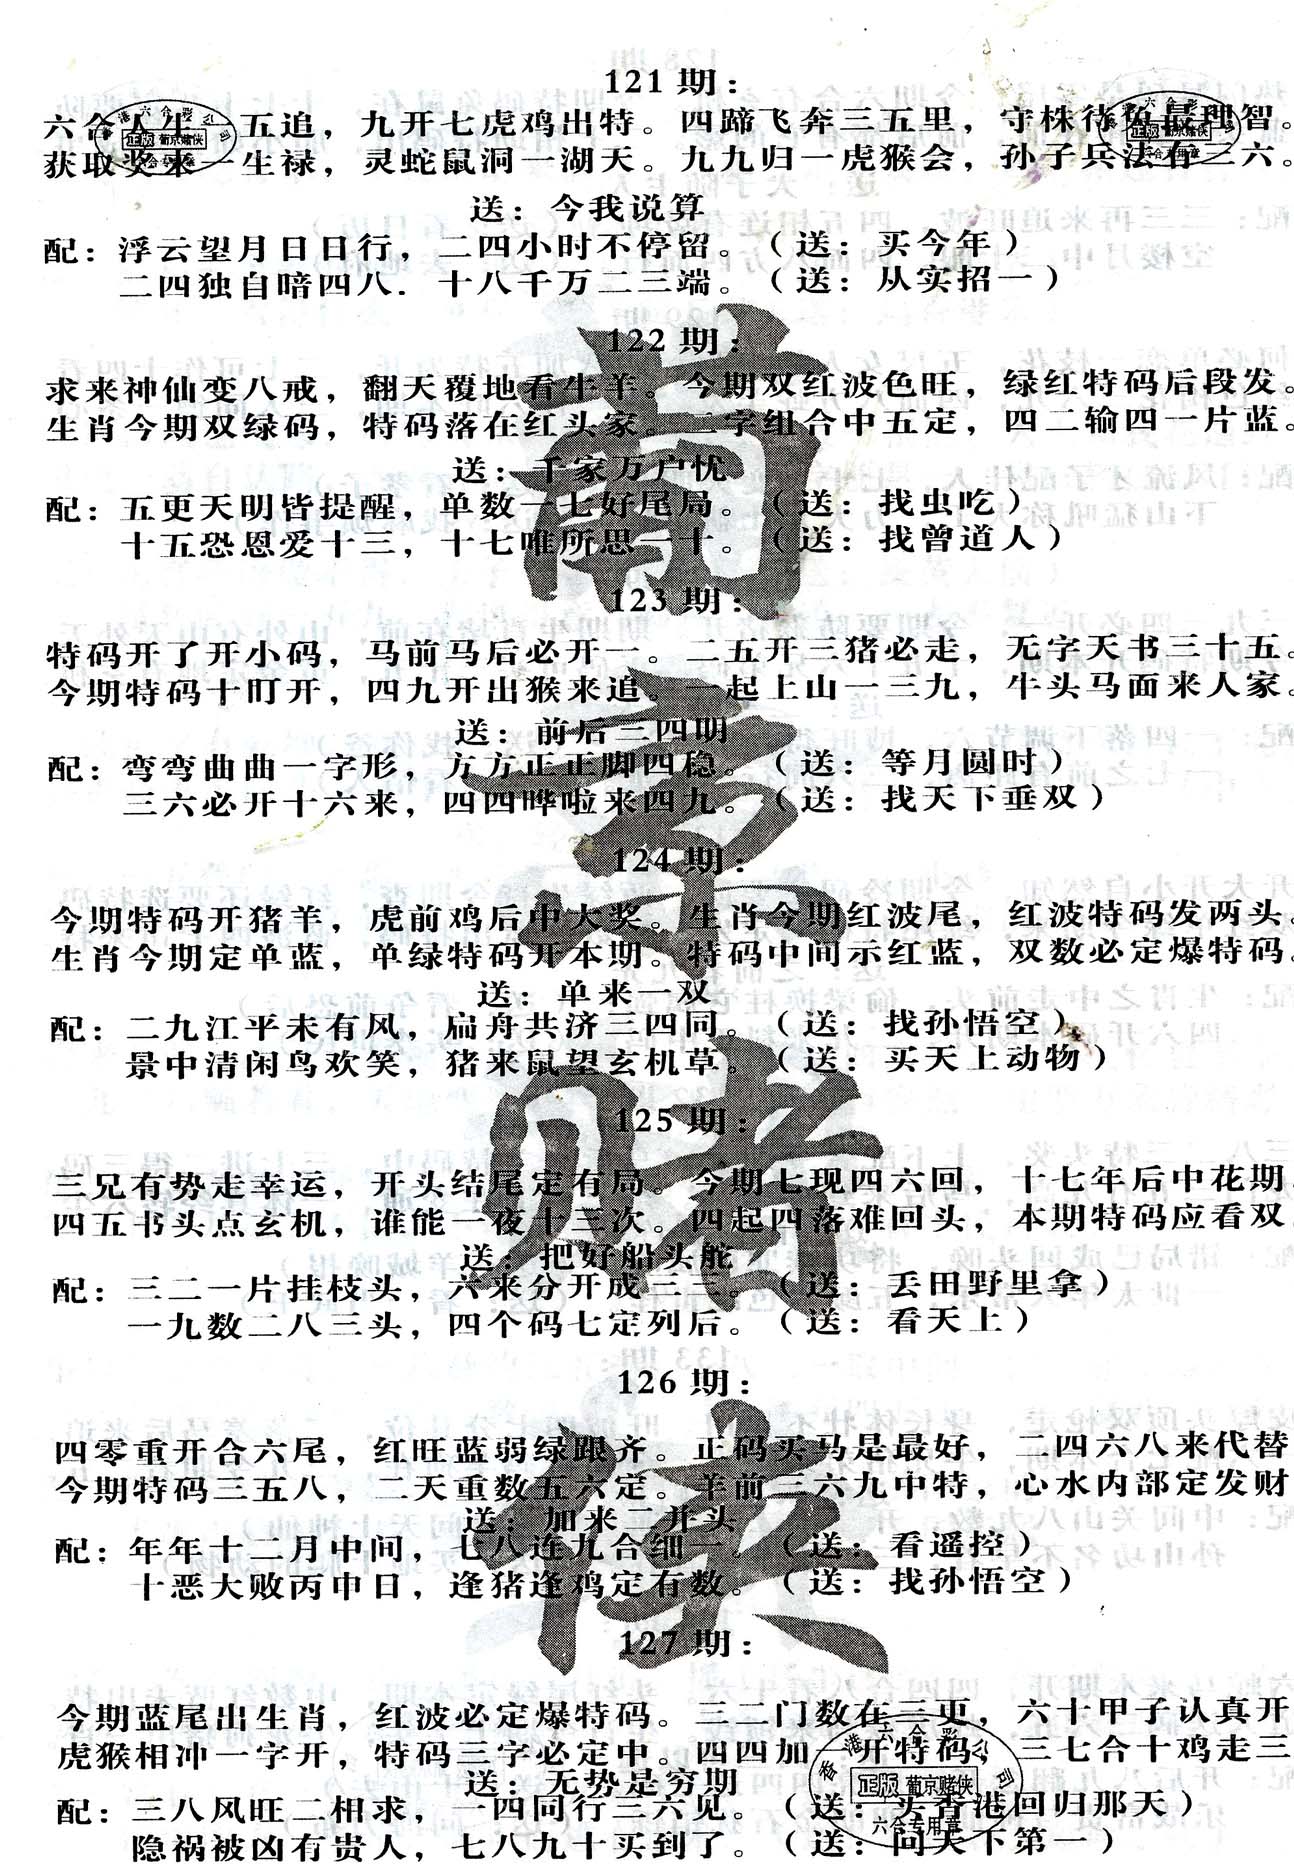 121期：
六合人生 五追，九开七虎鸡出特。四蹄飞奔三五里，守株待兔最理智。
获取奖来一生禄，灵蛇鼠洞一湖天。九九归一虎猴会，孙子兵法有三六。
送：今我说算
配：浮云望月日日行，二四小时不停留。（送：买今年）
二四独自暗四八．十八千万二三端。（送：从实招一）
122期：
求来神仙变八戒，翻天覆地看牛羊。今期双红波色旺，绿红特码后段发。
生肖今期双绿码，特码落在红头家。二字组合中五定，四二输四一片蓝。
送：千家万户忧
配：五更天明皆提醒，单数一七好尾局。（送：找虫吃）
十五恐恩爱十三，十七唯所思一十。（送：找曾道人）
123期：
特码开了开小码，马前马后必开一。二五开三猪必走，无字天书三十五。
今期特码十盯开，四九开出猴来追。一起上山一三九，牛头马面来人家。
送：前后三四明
配：弯弯曲曲一字形，方方正正脚四稳。（送：等月圆时）
三六必开十六来，四四哗啦来四九。（送：找天下垂双）
124期：
今期特码开猪羊，虎前鸡后中大奖。生肖今期红波尾，红波特码发两头。
生肖今期定单蓝，单绿特码开本期。特码中间示红蓝，双数必定爆特码。
送：单来一双
配：二九江平未有风，扁舟共济三四同。（送：找孙悟空）
景中清闲鸟欢笑，猪来鼠望玄机草。（送：买天上动物）
125期：
三兄有势走幸运，开头结尾定有局。今期七现四六回，十七年后中花期．
四五书头点玄机，谁能一夜十三次。四起四落难回头，本期特码应看双．
送：把好船头舵
配：三二一片挂枝头，六来分开成三三。（送：丢田野里拿）
一九数二八三头，四个码七定列后。（送：看天上）
126期：
四零重开合六尾，红旺蓝弱绿跟齐。正码买马是最好，二四六八来代替
今期特码三五八，二天重数五六定。羊前三六九中特，心水内部定发财
送：加来二并头
配：年年十二月中间，七八连九合细一。（送：看遥控）
十恶大败丙申日，逢猪逢鸡定有数。（送：找孙悟空）
127期：
今期蓝尾出生肖，红波必定爆特码。三二门数在三更，六十甲子认真开
虎猴相冲一字开，特码三字必定中。四四加 开特码，三七合十鸡走三
送：无势是穷期
配：三八风旺二相求，一四同行三六见。（送：买香港回归那天）
隐祸被凶有贵人，七八九十买到了。（送：问天下第一）
南京赌侠
香港六合彩公司
正版 葡京赌侠
六合专用章